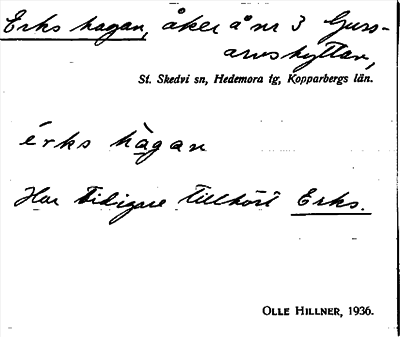 Erks hagan, åker å nr 3 Guss-
arvshyttan,
St. Skedvi sn, Hedemora tg, Kopparbergs län.
érks hàgan
Har tidigare tillhört Erks.
OLLE HILLNER, 1936.